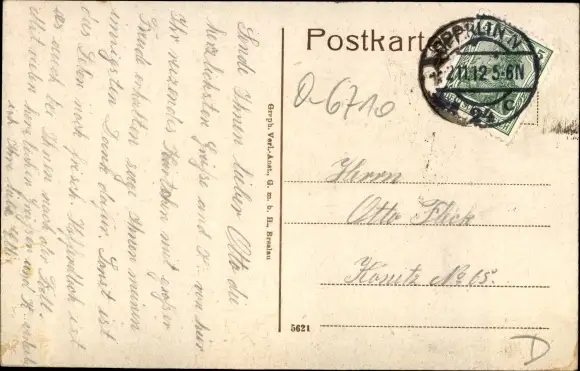 Postkarte
OPPELN
2.11.12.5-6N
c
O-6710
Herrn
Otto Fleck
Konitz No 15.
D
5621
Graph. Verl.-Anst., G. m. b. H., Breslau
Sende Ihnen lieber Otto die
herzlichsten Grüße und von hier
Ihr Kärtchen mit großer
Freude erhalten sage Ihnen meinen
innigsten Dank dafür. Sonst ist
das Leben noch frisch. Hoffentlich ist
es auch bei Ihnen noch der Fall.
Mit vielen herzlichen Grüßen und